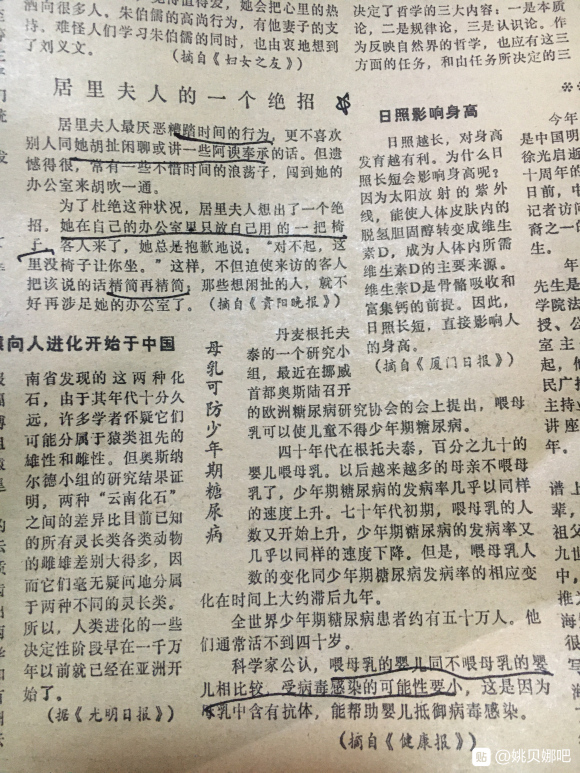 洒向很多人。朱伯儒的高尚行为，有他
持、难怪人们学习朱伯儒的同时，也由衷地想到
了刘义文。
（摘自《妇女之友》）
居里夫人的一个绝招
居里夫人最厌恶糟踏时间的行为，更不喜欢
别人同她胡扯闲聊或讲一些阿谀奉承的话。但遗
憾得很，常有一些不惜时间的浪荡子，闯到她的
办公室来胡吹一通。
为了杜绝这种状况，居里夫人想出了一个绝
招。她在自己的办公室里只放自己用的一把椅
子。客人来了，她总是抱歉地说：“对不起，这
里没椅子让你坐。”这样，不但迫使来访的客人
把该说的话精简再精简；那些想闲扯的人，就不
好再涉足她的办公室了。（摘自《贵阳晚报》）
决定了哲学的三大内容：一是本质
论，二是规律论，三是认识论。作
为反映自然界的哲学，也应有这三
方面的任务，和由任务所决定的三
日照影响身高
日照越长，对身高
发育越有利。为什么日
照长短会影响身高呢？
因为太阳放射的紫外
线，能使人体皮肤内的
脱氢胆固醇转变成维生
素D，成为人体内所需
维生素D的主要来源。
维生素D是骨骼吸收和
富集钙的前提。因此，
日照长短，直接影响人
的身高。
（摘自《厦门日报》）
向人进化开始于中国
南省发现的这两种化
石，由于其年代十分久
远，许多学者怀疑它们
可能分属于猿类祖先的
雄性和雌性。但奥斯纳
尔德小组的研究结果证
明，两种“云南化石”
之间的差异比目前已知
的所有灵长类各类动物
的雌雄差别大得多，因
而它们毫无疑问地分属
于两种不同的灵长类。
所以，人类进化的一些
决定性阶段早在一千万
年以前就已经在亚洲开
始了。
（据《光明日报》）
母乳可防少年期糖尿病
丹麦根托夫
泰的一个研究小
组，最近在挪威
首都奥斯陆召开
的欧洲糖尿病研究协会的会上提出，喂母
乳可以使儿童不得少年期糖尿病。
四十年代在根托夫泰，百分之九十的
婴儿喂母乳。以后越来越多的母亲不喂母
乳了，少年期糖尿病的发病率几乎以同样
的速度上升。七十年代初期，喂母乳的人
数又开始上升，少年期糖尿病的发病率又
几乎以同样的速度下降。但是，喂母乳人
数的变化同少年期糖尿病发病率的相应变
化在时间上大约滞后九年。
全世界少年期糖尿病患者约有五十万人。他
们通常活不到四十岁。
科学家公认，喂母乳的婴儿同不喂母乳的婴
儿相比较，受病毒感染的可能性要小，这是因为
母乳中含有抗体，能帮助婴儿抵御病毒感染。
（摘自《健康报》）
今年
是中国明
徐光启逝
十周年的
日前，中
记者访问
裔之一的
生。
先生是
学院法
授、公
室主
起，他
民广播
主持
讲座
年。
谱上
辈，
祖父
九世
中
推
海
贴 @姚贝娜吧